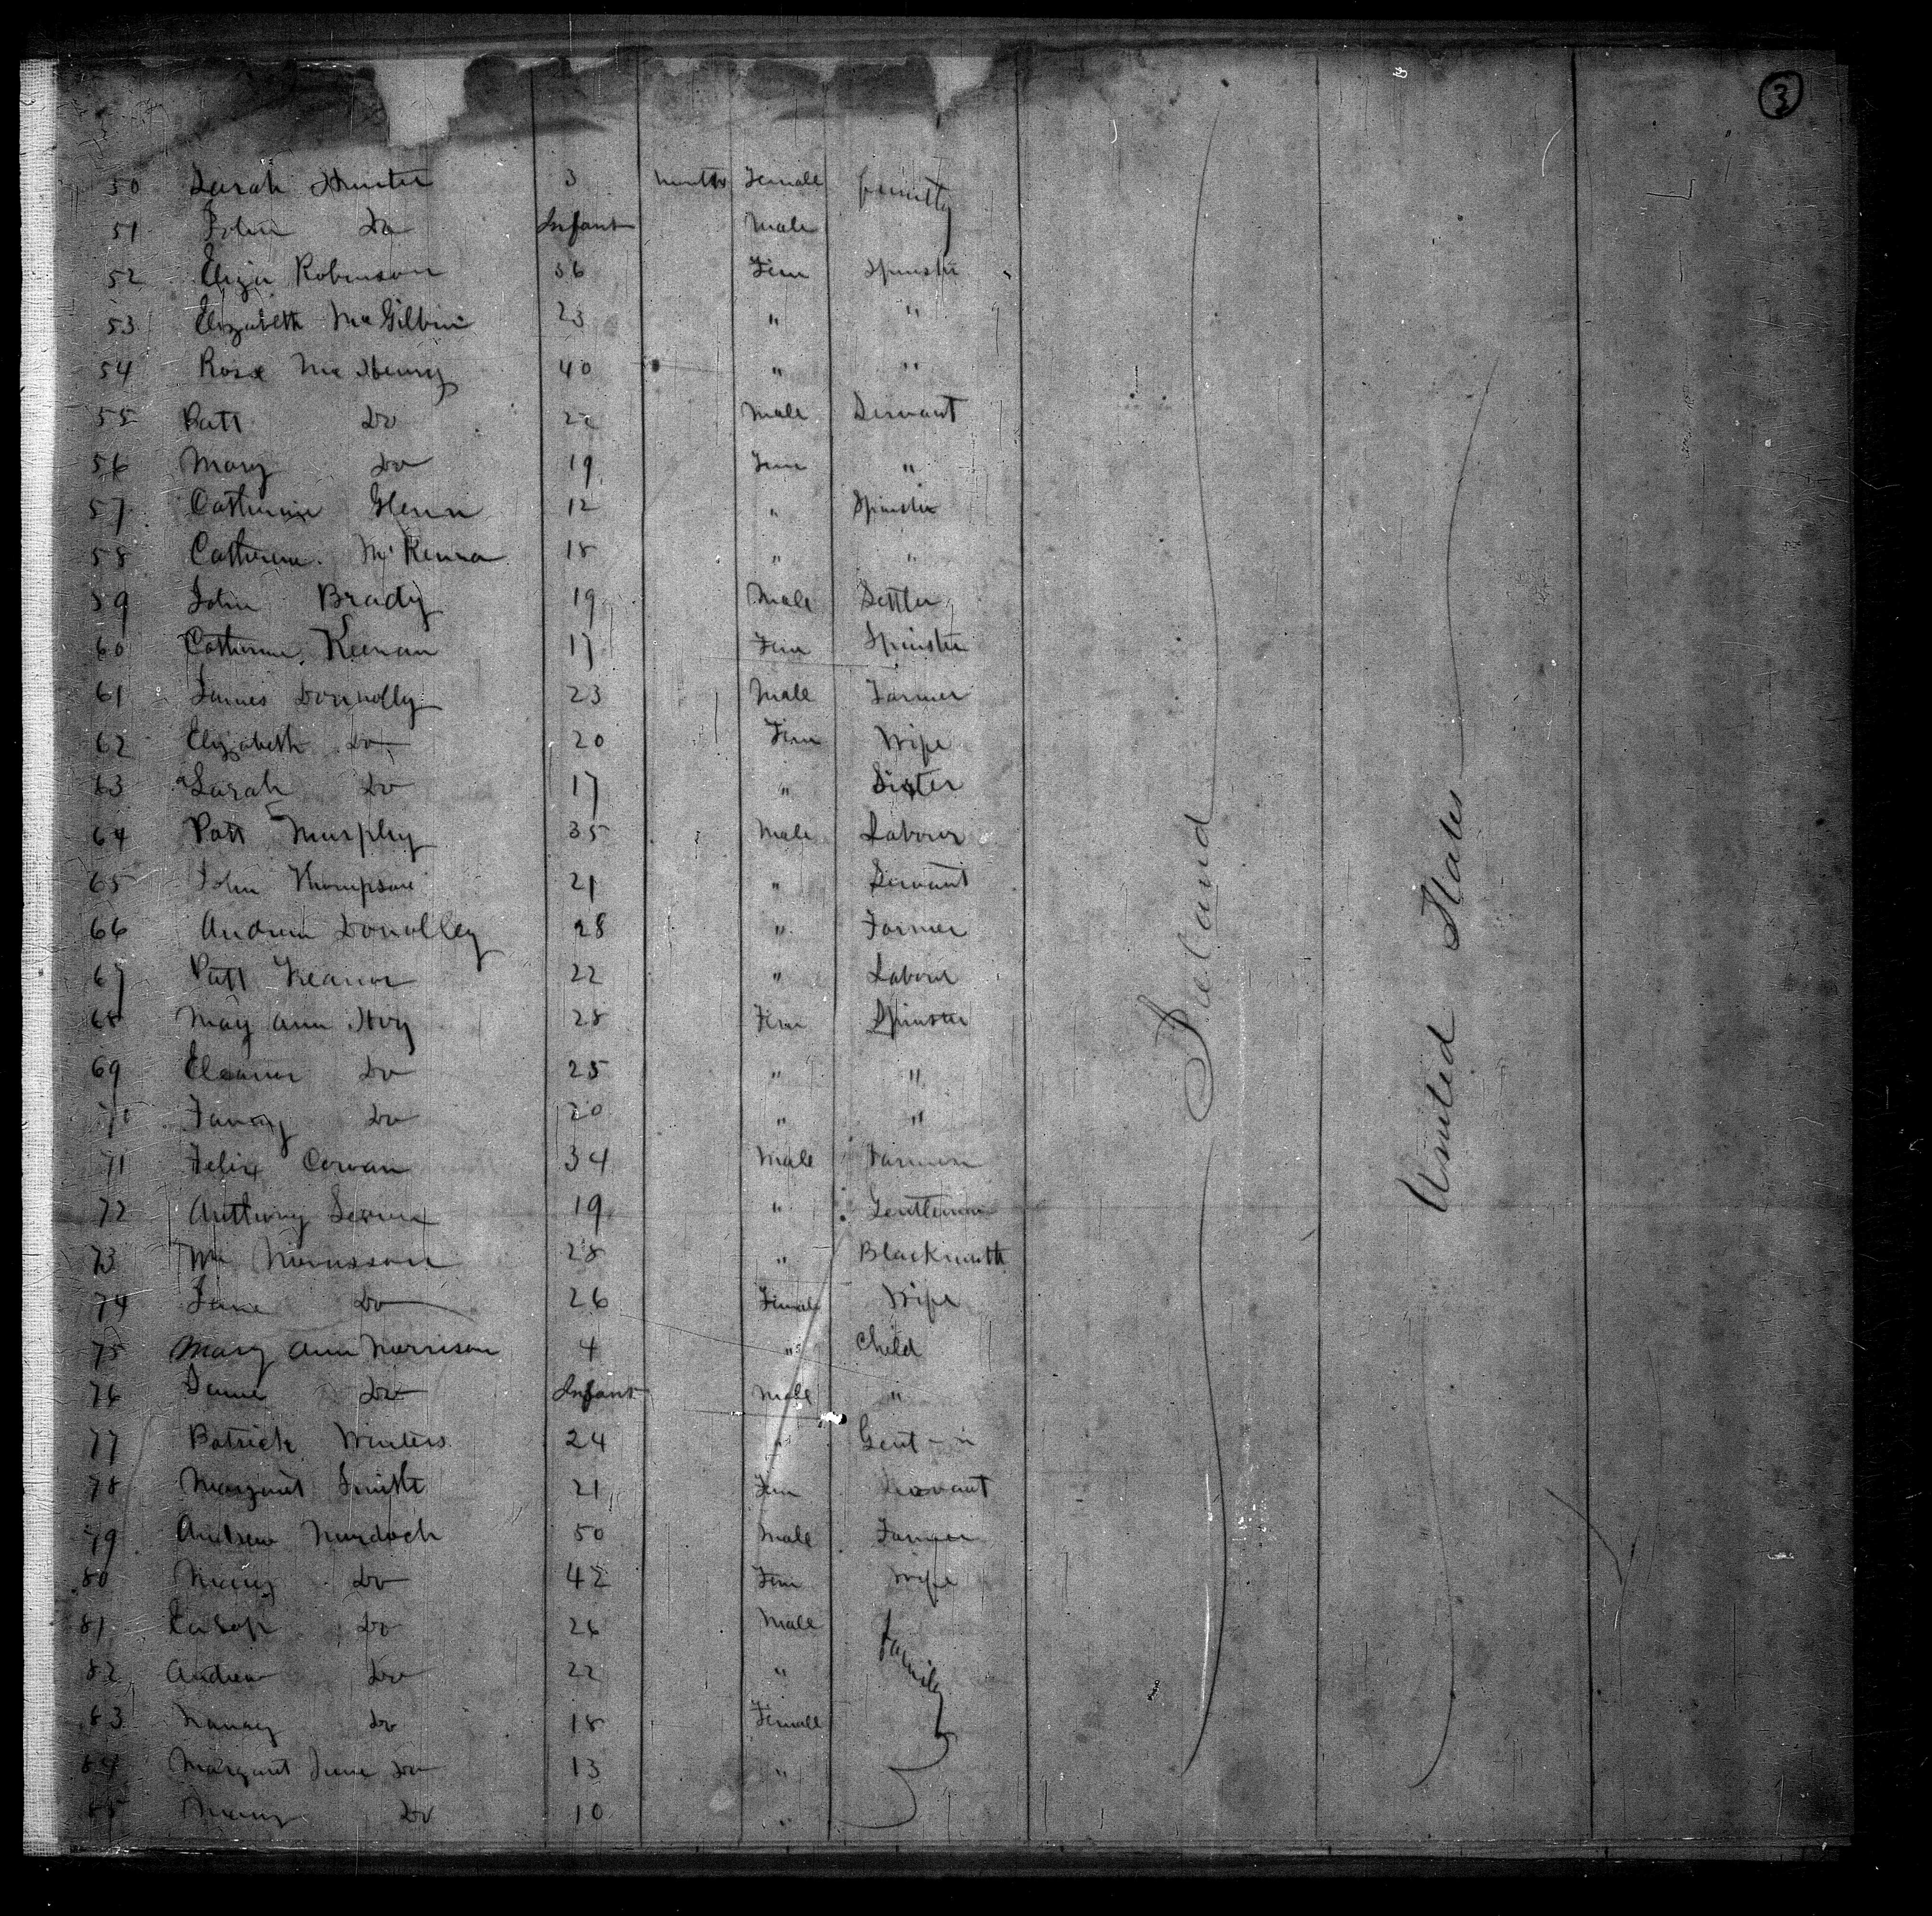 3
50 Sarah Hunter 3 months Female family
51 John Do Infant Male
52 Eliza Robinson 36 Fem Spinster
53 Elizabeth 23 " "
54 Rose McHenry 40 " "
55 Patt Do 22 Male Servant
56 Mary Do 19 Fem "
57 Catherine Glenn 12 " Spinster
58 Catherine McKenna 18 " "
59 John Brady 19 Male Settler
60 Catherine Keenan 17 Fem Spinster
61 James Donnolly 23 Male Farmer
62 Elizabeth Do 20 Fem Wife
63 Sarah Do 17 " Sister
64 Patt Murphy 35 Male Labour
65 John Thompson 21 " Servant
66 Andrew Donolley 28 " Farmer
67 Patt 22 " Labour
68 May Ann Hoy 28 Fem Spinster
69 Eleanor Do 25 " "
70 Fanny Do 20 " "
71 Felix 34 Male Farmer
72 Anthony 19 " Gentleman
73 Wm 28 " Blacksmith
74 Jane Do 26 Female Wife
75 Mary Ann Morrison 4 " Child
76 Do Infant Male "
77 Patrick Winters 24 " Gent-n
78 Margaret Smith 21 Fem Servant
79 Andrew Murdoch 50 Male Farmer
80 Do 42 Fem Wife
81 Do 26 Male family
82 Andrew Do 22 "
83 Nancy Do 18 Female
84 Margaret Jane Do 13 "
85 Do 10 "
Ireland
United States